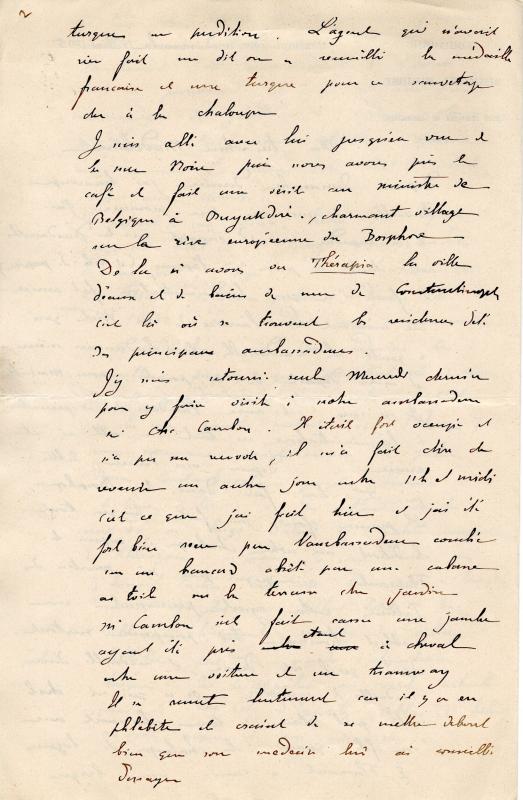 2
turque en perdition. L'agent qui n'avait
rien fait me dit on a recueilli la médaille
française et une turque pour ce sauvetage
du à la chaloupe
Je suis allé avec lui jusqu'en vue de
la mer Noire puis nous avons pris le
café et fait une visite au ministre de
Belgique à Buyukdéré, charmant village
sur la rive européenne du Bosphore
De la n avons vu Thérapia la ville
d'eaux et de bains de mer de Constantinople
c'est là où se trouvent les residences d'été
des principaux ambassadeurs.
J'y suis retourné seul Mercredi dernier
pour y faire visite à notre ambassadeur
Mr Cambon. Il était fort occupé et
n'a pu me recevoir, il m'a fait dire de
revenir un autre jour entre 11h et midi
c'est ce que j'ai fait hier et j'ai été
fort bien recu par l'ambassadeur couché
sur un brancard abrité par une cabane
en toile sur la terrasse du jardin
Mr Cambon s'est fait casser une jambe
ayant été pris etant à cheval
entre une voiture et un tramway
Il se remet lentement car il y a eu
phlébite et craint de se mettre debout
bien que son medecin lui ai conseillé
d'essayer